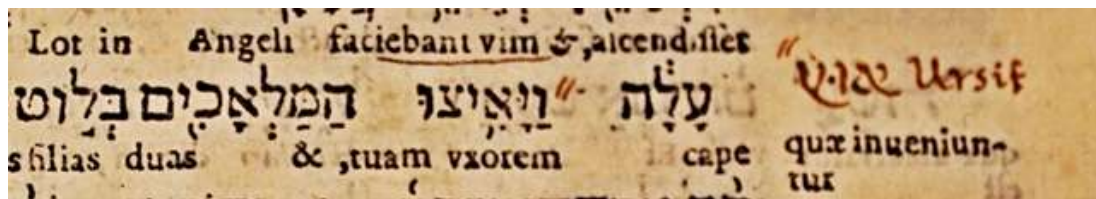 Lot in Angeli faciebant vim &,ascendisset
עָלָה וַיָּאִיצוּ הַמַּלְאָכִים בְּלוֹט
s filias duas & ,tuam vxorem cape
אוץ Ursit
quæ inueniun-
tur